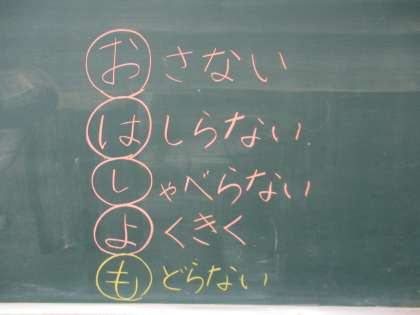 おさない
はしらない
しゃべらない
よくきく
もどらない